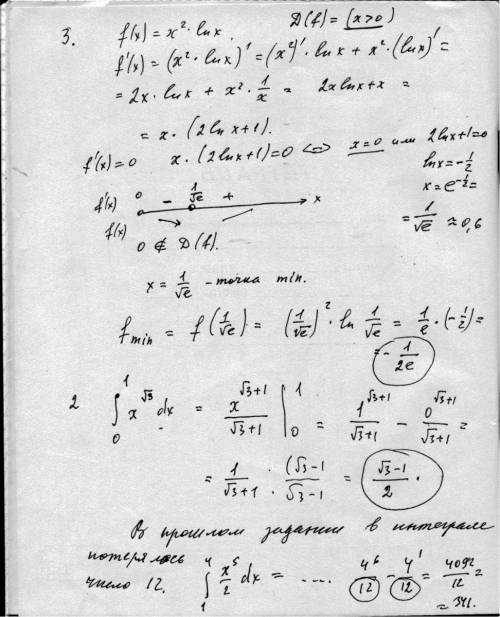 3. f(x) = x² · ln x. D(f) = (x>0)
f'(x) = (x² · ln x)' = (x²)' · ln x + x² · (ln x)' =
= 2x · ln x + x² · 1/x = 2x ln x + x =
= x · (2 ln x + 1).
f'(x) = 0 x · (2 ln x + 1) = 0 <=> x = 0 или 2 ln x + 1 = 0
ln x = -1/2
x = e^(-1/2) =
= 1/√e ≈ 0,6
f'(x) 0 - 1/√e + x
f(x)
0 ∉ D(f).
x = 1/√e - точка min.
f min = f(1/√e) = (1/√e)² · ln 1/√e = 1/e · (-1/2) =
= - 1/2e
2 ∫₀¹ x^√3 dx = x^(√3+1)/(√3+1) |₀¹ = 1^(√3+1)/(√3+1) - 0^(√3+1)/(√3+1) =
= 1/(√3+1) · (√3-1)/(√3-1) = (√3-1)/2 .
В прошлом задании в интеграле
потерялось
число 12. ∫₁⁴ x⁵/2 dx = .... 4⁶/12 - 4¹/12 = 4092/12 =
= 341.